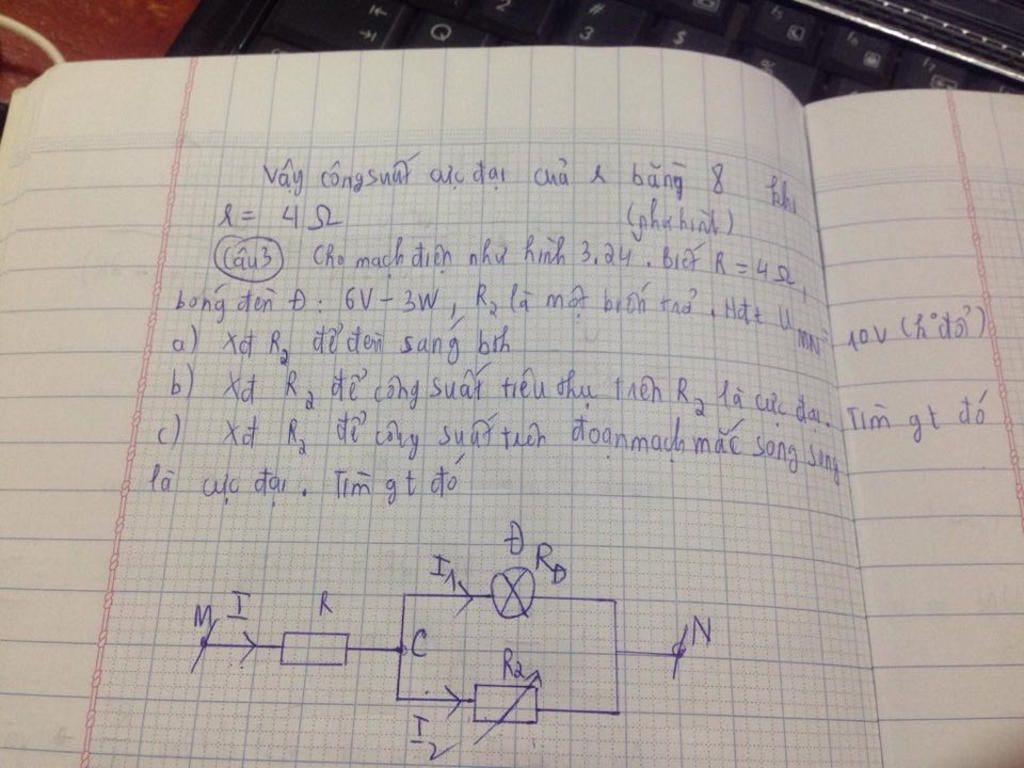 Vậy công suất cực đại của r bằng 8 khi
r = 4 Ω (phụ hình)
Câu 3 Cho mạch điện như hình 3.24. Biết R = 4Ω,
bóng đèn Đ: 6V - 3W, R2 là một biến trở. Hđt UMN = 10V (h° đổi)
a) Xđ R2 để đèn sáng bth
b) Xđ R2 để công suất tiêu thụ trên R2 là cực đại. Tìm gt đó
c) Xđ R2 để công suất trên đoạn mạch mắc song song
là cực đại. Tìm gt đó
Đ
I1 RĐ
M I R
C N
R2
I2